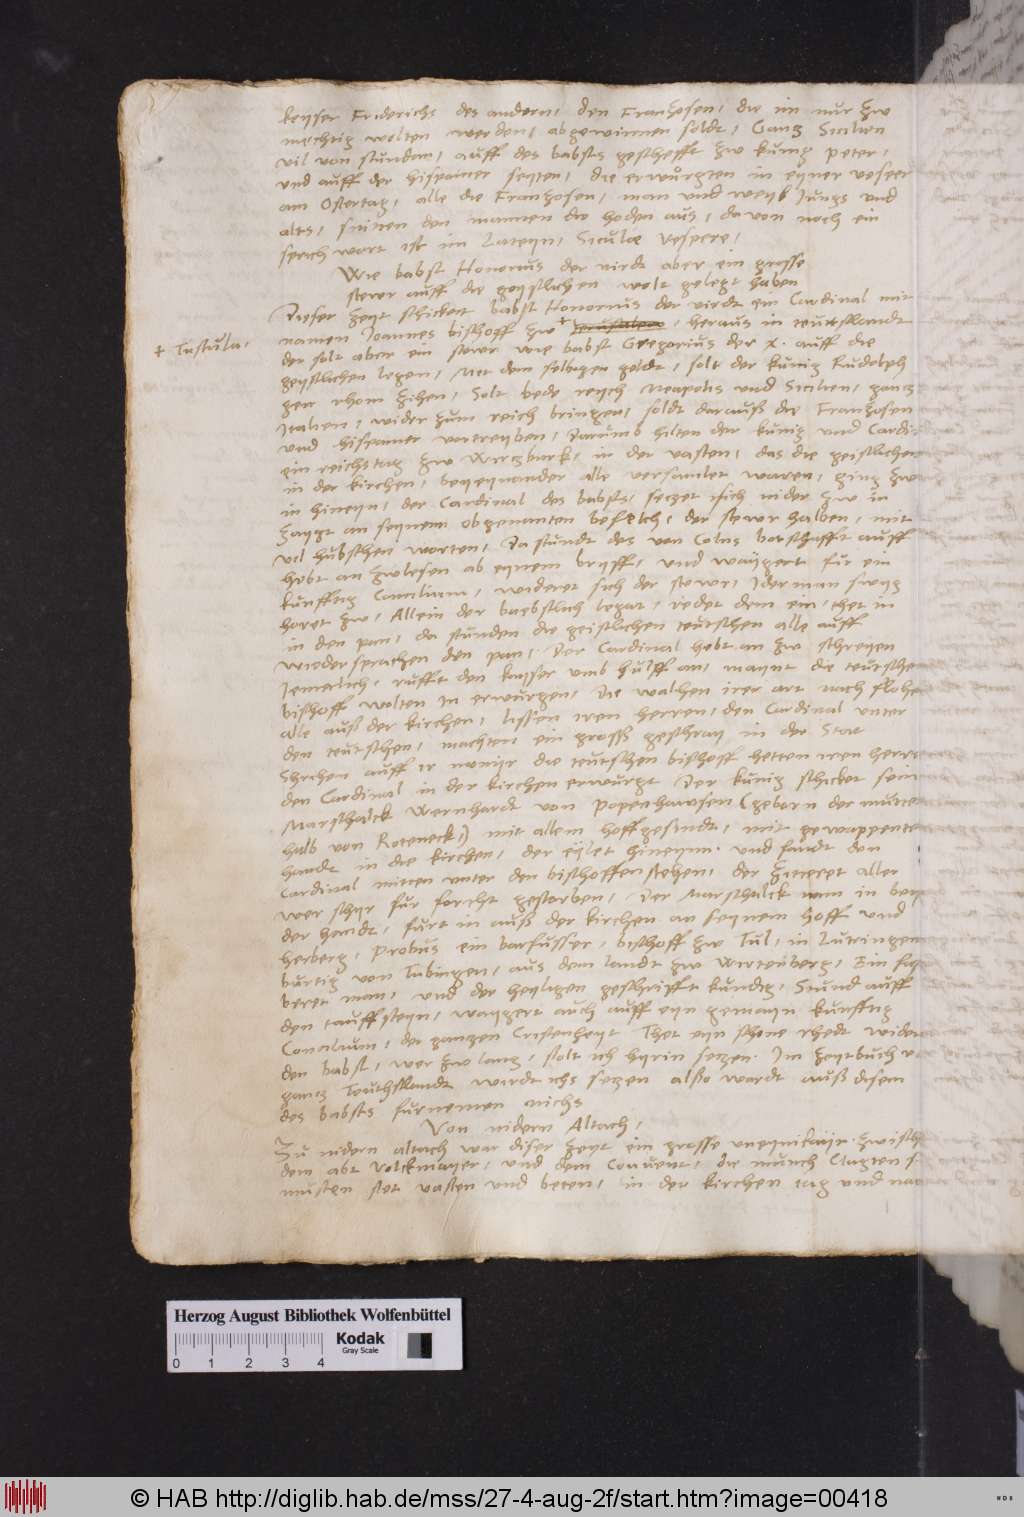 keyser Friderichs des andern, den Franzosen, die im nur zw
mechtig wolten werden, abgewinnen soldt, Ganz Sicilien
vil von stundan, auff des babsts geschefft zw kunig Peter,
und auff der hispanier seyten, die erwurgten in eyner vesper
am Ostertag, alle die Franzosen, man und weyb Jungs und
alts, sniten den mannen die hoden aus, davon noch ein
sprichwort ist im Lateyn, Siculae Vespere,
Wie babst Honorius der virdt aber ein grosse
stewr auff die geystlichen wolt gelegt haben
Dieser zeyt schicket babst Honorius der vierdt ein Cardinal mit
namen Joannes bischoff zw + Jerusalem, heraus in teutschlandt
+ Tuscula,
der solt aber ein stewr wie babst Gregorius der x. auff die
geystlichen legen, Mit dem selbigen geldt, solt der kunig Rudolph
gen rhom zihen, Solt bede reych Neapolis und Sicilien, ganz
Italien, wider zum reich bringen, soldt darauß die Franzosen
und hispanier vertreyben, Darumb hilten der kunig und Cardi
ein reichstag zw Wirzburk, in der vasten, das die geistlichen
in der kirchen, beyeynander alle versamlet waren, ging zw
in hineyn, der Cardinal des babsts, sezet sich nider zw in
zaygt an seynem obgenanten befelch, der stewr halben, mit
vil hubschen worten, Da stundt des von Colns botschafft auff
hebt an zwlesen ab eynem bryff, und waygert fur ein
kunfftig Concilium, wideret sich der stewr, Iderman swyg
horet zw, Allein der baebstlich legat, redet dem ein, thet in
in den pan, da stunden die geistlichen teutschen alle auff
widersprachen den pan, Der Cardinal hebt an zw schreyen
Jemerlich, rufft den kayser umb hulff an, maynt die teutsche
bischoff wolten in erwurgen, Die walhen irer art nach flohe
alle auß der kirchen, lissen iren herren, den Cardinal unter
den teutschen, machten ein groß geschray in der Stat
Shrihen auff ir monyr die teutschen bischoff hetten iren herre
den Cardinal in der kirchen erwurgt Der kunig schicket sein
Marschalck Wernhardt von Popenhawsen (geborn der mutter
halb von Roteneck) mit allem hoffgesindt, mit gewappente
handt in die kirchen, der eylet hineynn, und fandt den
Cardinal mitten unter den bischoffen stehen, der zitteret aller
wer schyr fur forcht gestorben, Der Marschalck nam in bey
der handt, furt in auß der kirchen an seynem hoff und
herberg, Probus ein barfusser, bischoff zw Tul, in Lutringen
burtig von Tubingen, aus dem landt zw Wirtenberg, Ein
beret man, und der heyligen geschrifft kundig, Stund auff
den tauffsteyn, waygert auch auff eyn gemayn kunfftig
Concilium, der ganzen Cristenheyt Thet eyn schone rhedt wider
den babst, wer zw lang, solt ich hyrin sezen. Im zeytbuch
ganz Teutschlandt wirdt ichs sezen also wardt auß disem
des babsts furnemen nichs
Von nidern Altach,
Zu nidern altach war diser zeyt ein grosse uneynikayt zwisch
dem abt Volckmayer, und dem Convent, die munch Clagten
musten stet vasten und beten, in der kirchen tag und
Herzog August Bibliothek Wolfenbüttel
Kodak
Gray Scale
0 1 2 3 4
© HAB http://diglib.hab.de/mss/27-4-aug-2f/start.htm?image=00418